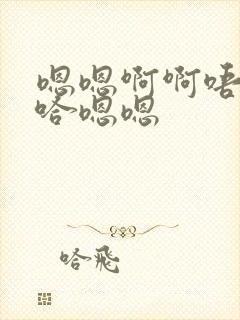 嗯嗯啊啊唔
哈嗯嗯
哈飛